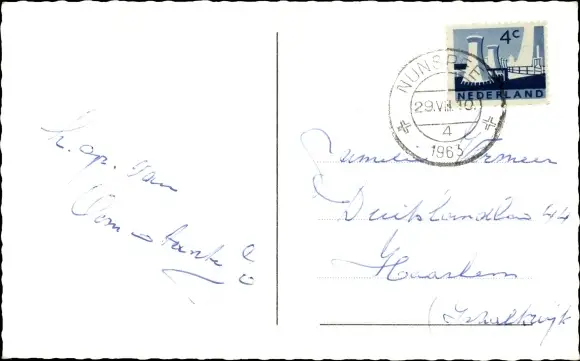 4c
NEDERLAND
NUNSPEET
29.VII.10.
4
1963
Hr. gr. van
Oom & tante
Familie Vermeer
Duitslandlaan 44
Haarlem
(Schalkwijk